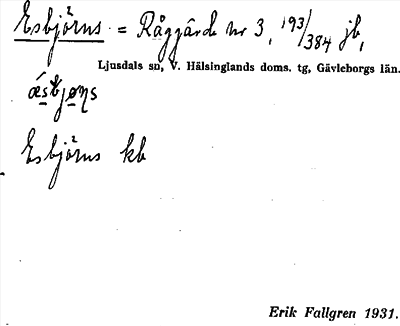 Esbjörns = Råggärde nr 3, 193/384 jb,
Ljusdals sn, V. Hälsinglands doms. tg, Gävleborgs län.
Esbjörns kb
Erik Fallgren 1931.